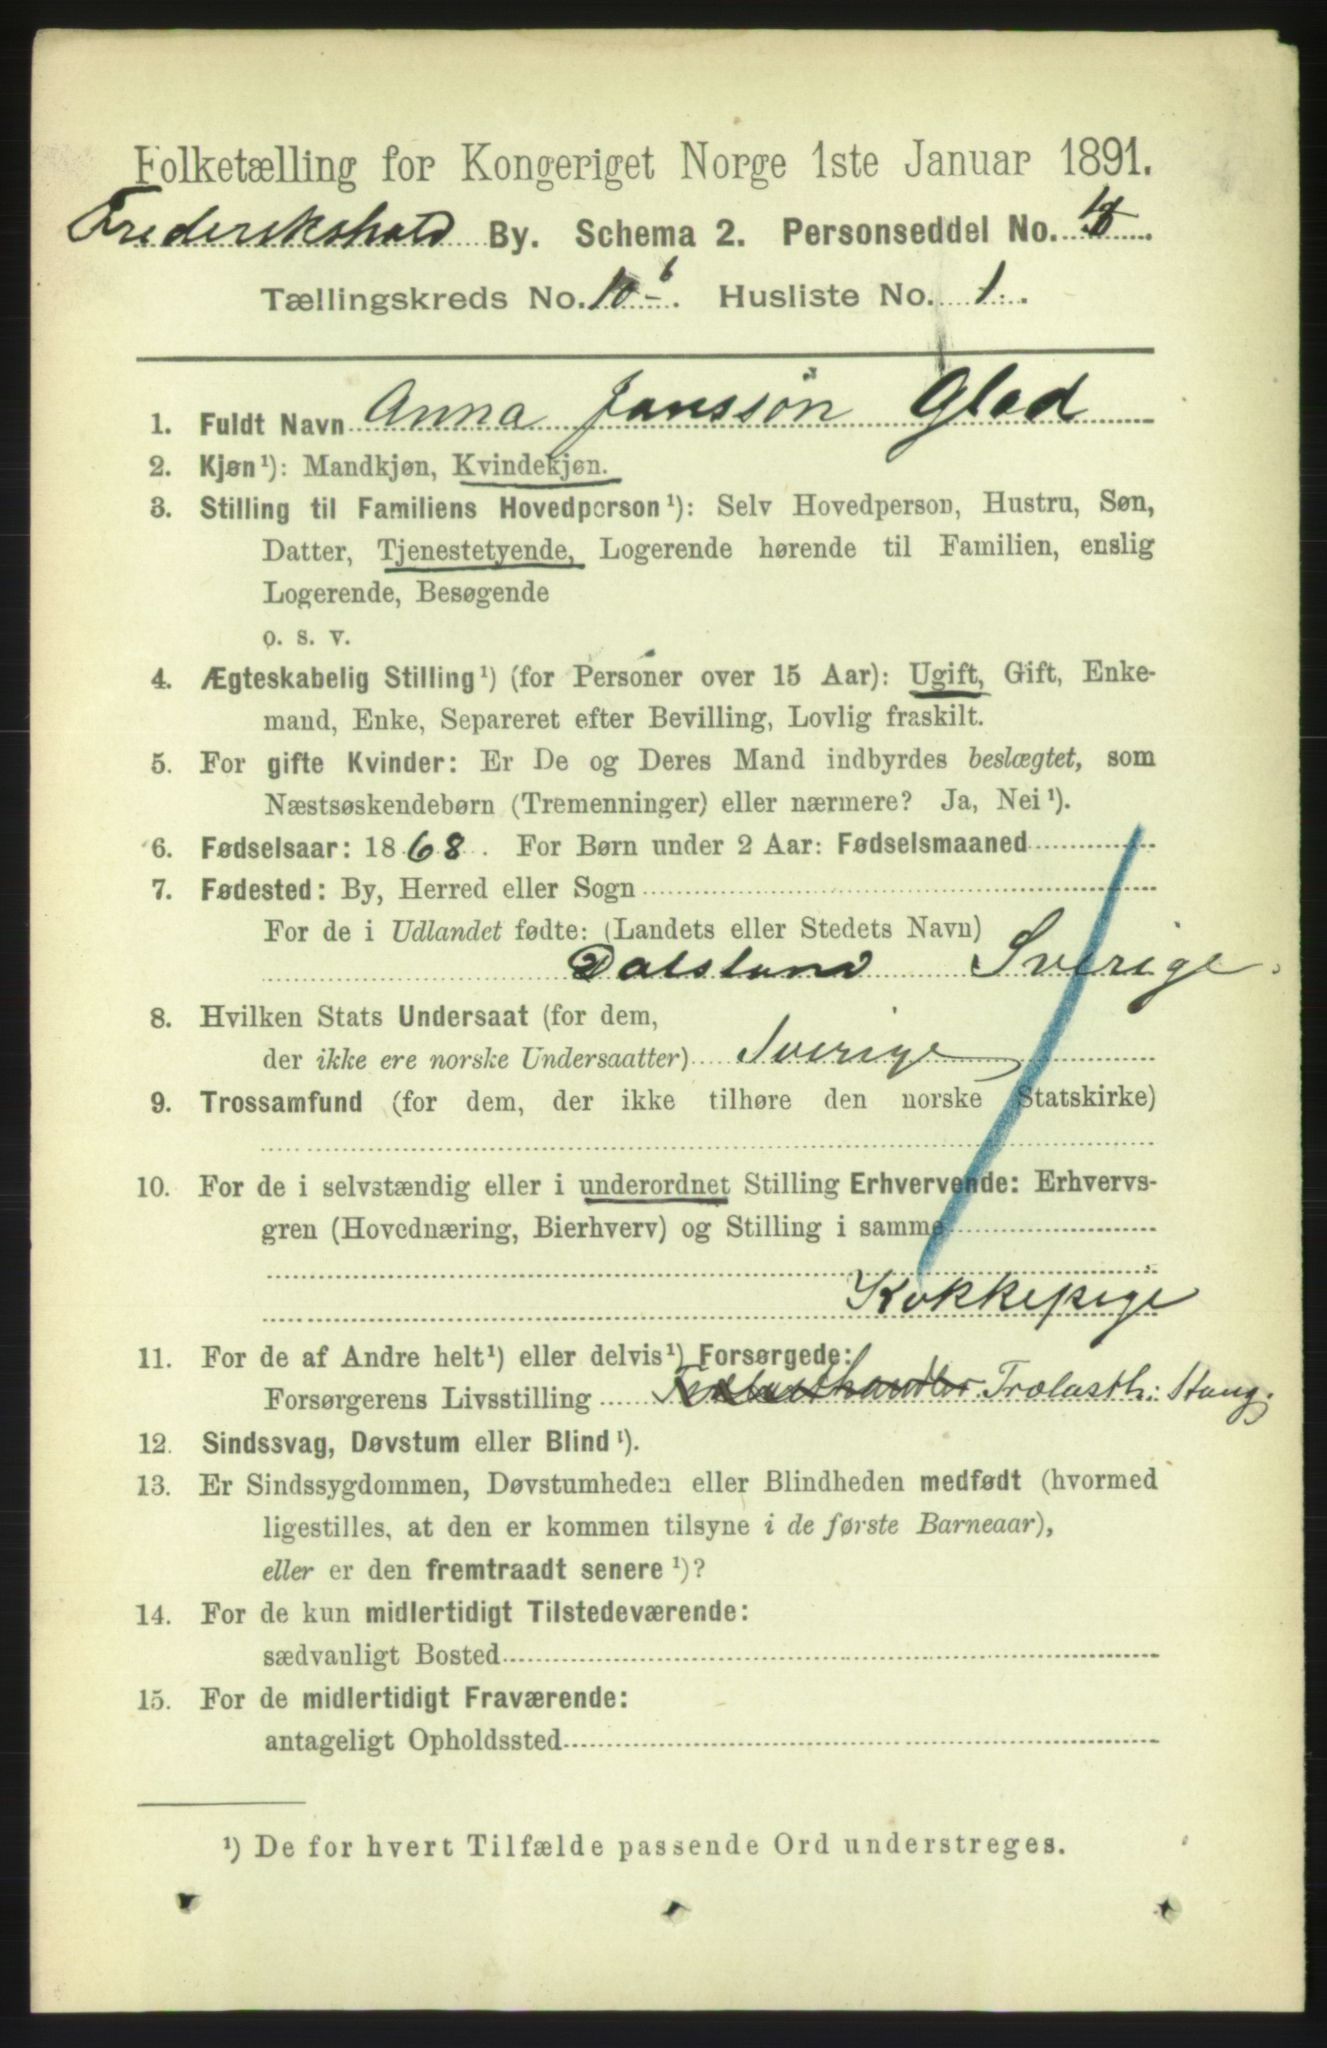 Folketælling for Kongeriget Norge 1ste Januar 1891.
Frederikshald By. Schema 2. Personseddel No.
Tællingskreds No. 10 b. Husliste No. 1.
1. Fuldt Navn Anna Janssøn Glad
2. Kjøn¹): Mandkjøn, Kvindekjøn.
3. Stilling til Familiens Hovedperson¹): Selv Hovedperson, Hustru, Søn,
Datter, Tjenestetyende, Logerende hørende til Familien, enslig
Logerende, Besøgende
o. s. v.
4. Ægteskabelig Stilling¹) (for Personer over 15 Aar): Ugift, Gift, Enke-
mand, Enke, Separeret efter Bevilling, Lovlig fraskilt.
5. For gifte Kvinder: Er De og Deres Mand indbyrdes beslægtet, som
Næstsøskendebørn (Tremenninger) eller nærmere? Ja, Nei¹).
6. Fødselsaar: 1868. For Børn under 2 Aar: Fødselsmaaned
7. Fødested: By, Herred eller Sogn
For de i Udlandet fødte: (Landets eller Stedets Navn)
Dalsland Sverige.
8. Hvilken Stats Undersaat (for dem,
der ikke ere norske Undersaatter) Sverige
9. Trossamfund (for dem, der ikke tilhøre den norske Statskirke)
10. For de i selvstændig eller i underordnet Stilling Erhvervende: Erhvervs-
gren (Hovednæring, Bierhverv) og Stilling i samme
Kokkepige
11. For de af Andre helt¹) eller delvis¹) Forsørgede:
Forsørgerens Livsstilling Trælasth: Stang.
12. Sindssvag, Døvstum eller Blind¹).
13. Er Sindssygdommen, Døvstumheden eller Blindheden medfødt (hvormed
ligestilles, at den er kommen tilsyne i de første Barneaar),
eller er den fremtraadt senere¹)?
14. For de kun midlertidigt Tilstedeværende:
sædvanligt Bosted
15. For de midlertidigt Fraværende:
antageligt Opholdssted
¹) De for hvert Tilfælde passende Ord understreges.